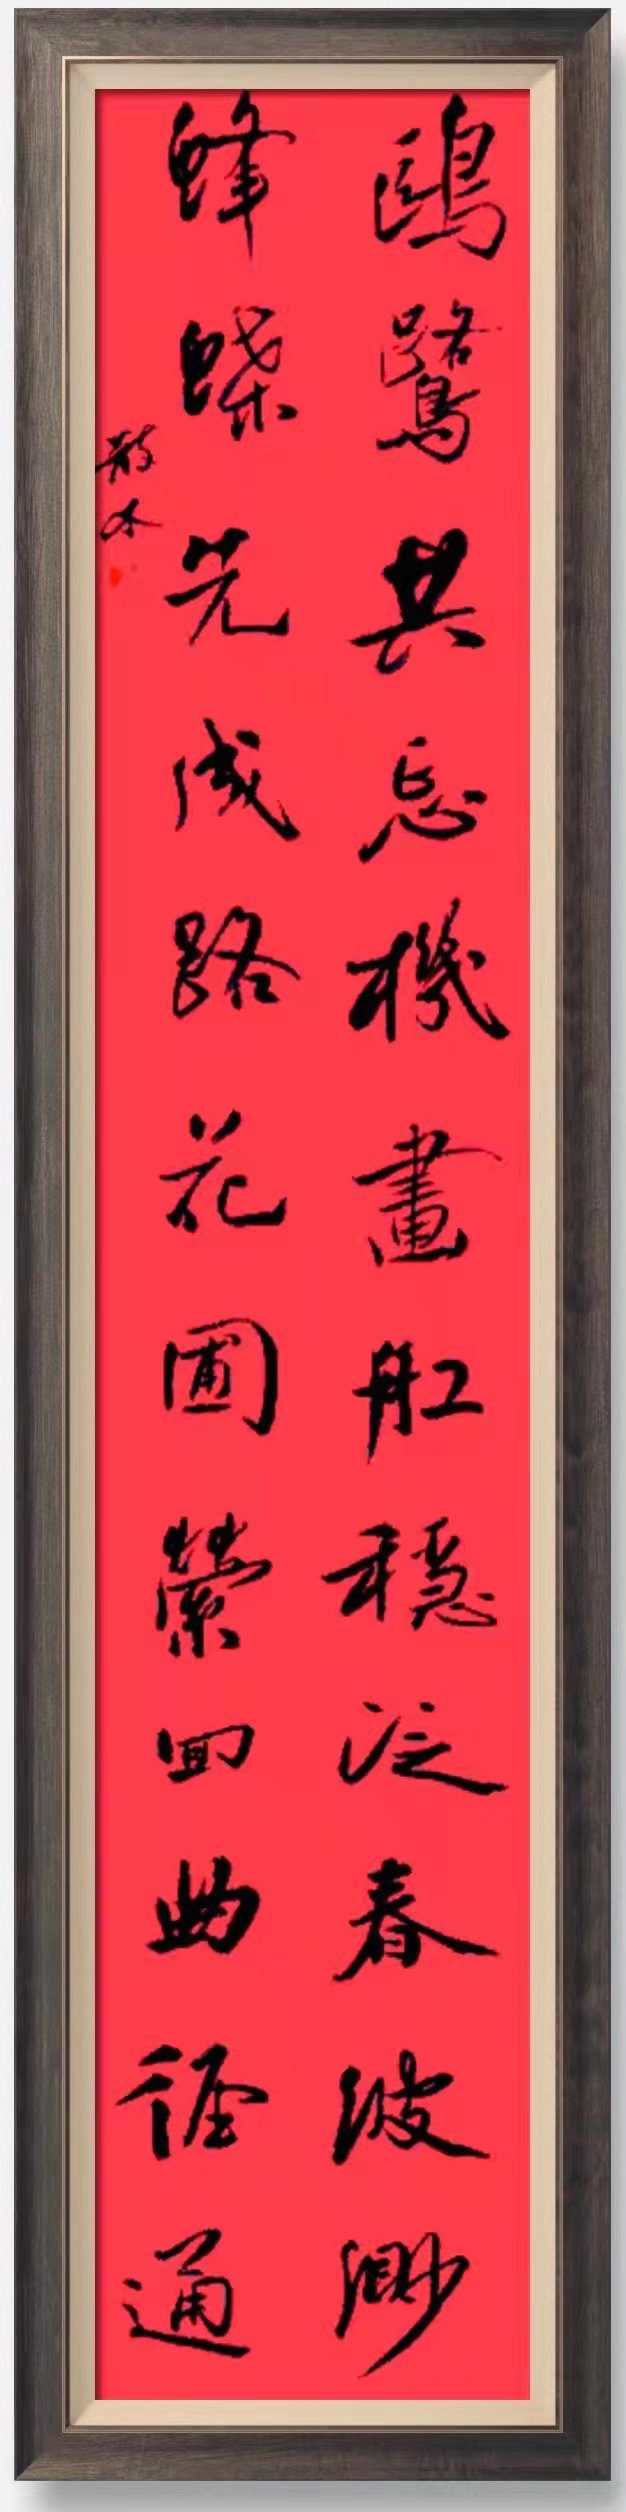 鷗鷺共忘機畫舡穩泛春波渺
蜂蝶先成路花圃縈回曲徑通